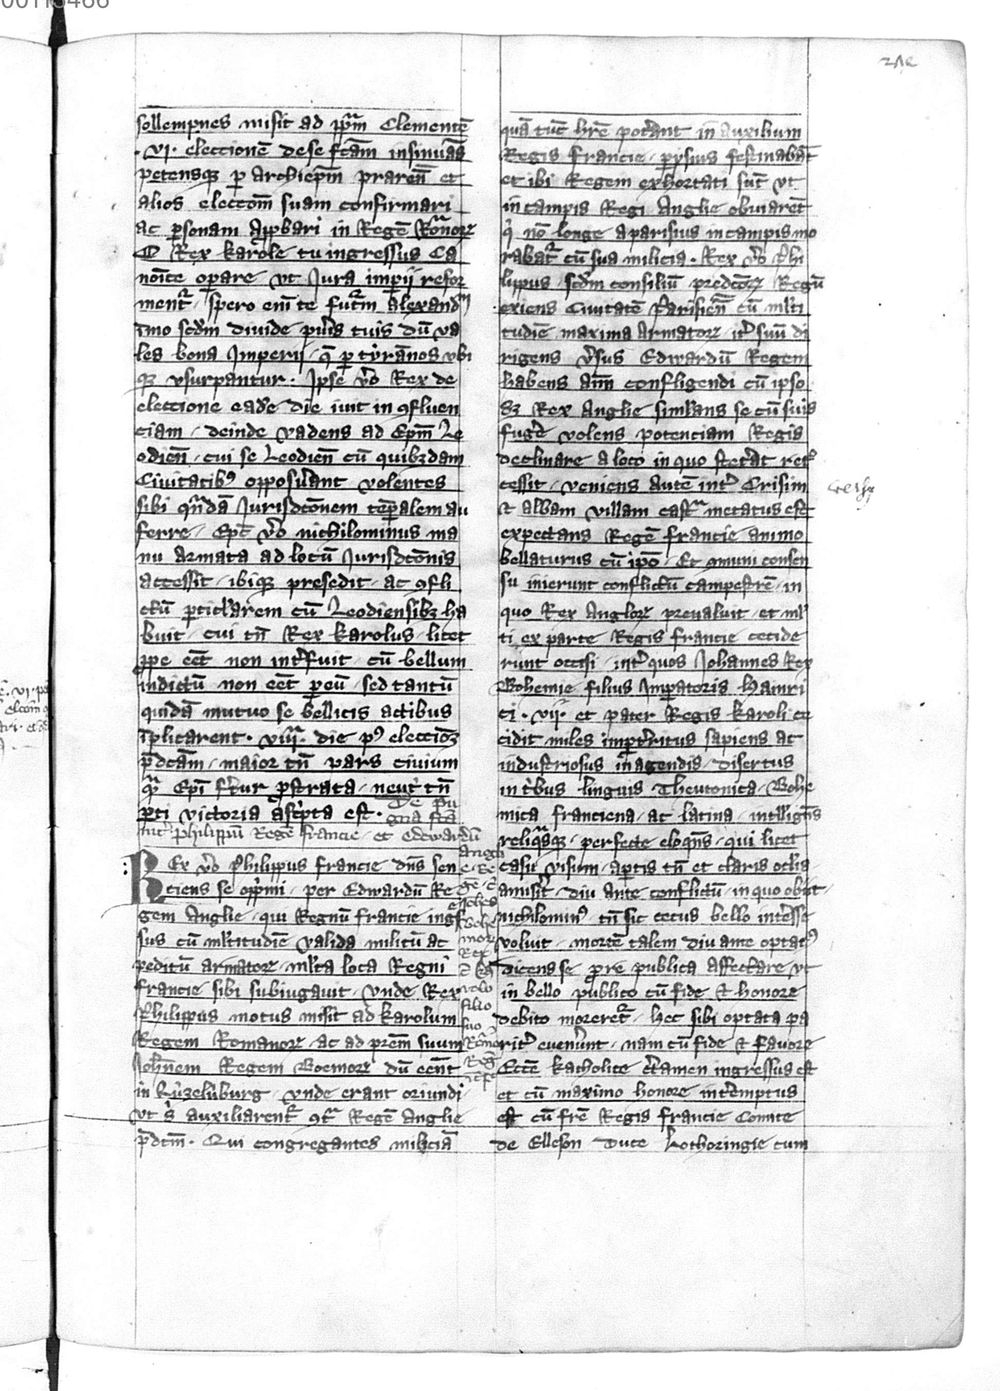 00113466
sollempnes misit ad ppm Clementē
·vi· eleccionē de se fcam insinuās
petensqz p archiepm pragen̄ et
alios eleccōm suam confirmari
ac psonam appbari in Regē Rōnorz
O Rex karole tu ingressus ca
noīce opare vt Jura impii refor
ment̄ spero em te futm alexandm
īmo scdm divide pūs tuis dū va
les bona Imperii q p tyrānos vbi
qz vsurpantur · Ipse vo Rex de
eleccione eadē die ivit in ꝯfluen
ciam deinde vadens ad Epm Le
odien̄ cui se Leodien̄ cū quibzdam
Civitatibꝰ opposuerant volentes
sibi qndā Jurisdcōnem tepalem au
ferre Epc vo nichilominus ma
nu armata ad locū Jurisdcōnis
accessit ibiqz presedit ac ꝯfli
ctū pticlarem cū Leodiensibz ha
buit cui tn Rex karolus licet
ppe eēt non intfuit cū bellum
indictū non eēt p eū sed tantū
quidā mutuo se bellicis actibus
īplicarent · viii die pꝰ eleccioz
pdcam maior tn pars civium
qm Epi ftur pstrata neut tn
pti victoria ascpta est · De pu
gna fca
int philippū Regē francie et Edewardū
Anglie Re
Rex vo Philippus francie dns sen
ciens se oppmi per Edwardū Re
gem Anglie qui Regnū francie ings
sus cū mltitudie valida militū ac
peditū armatorz mlta loca Regni
francie sibi subiugavit vnde Rex
Philippus motus misit ad karolum
Regem Romanorz ac ad prem suum
Johnem Regem Boemorz dū eent
in Luczelburg vnde erant oriundi
vt s auxiliarent ꝯt Regē Anglie
pdcm · Qui congregantes miliciā
quā tūc hre potant in auxilium
Regis francie pysius festinabāt
et ibi Regem exhortati sut vt
in campis Regi Anglie obviaret
q nō longe a parisius in campis mo
rabat cū sua milicia · Rex vo Phi
lippus scdm consiliū predcorz Regū
exiens Civitatē Parisien̄ cū mlti
tudie maxima Armatorz it suū di
rigens vsus Edwardū Regem
habens aīm confligendi cū ipso
Sz Rex Anglie simlans se cū suis
fuge volens potenciam Regis
declinare a loco in quo stetat ret
cessit veniens autē int Crisim
et albam villam cast metatus est
expectans Regē francie animo
bellaturus cū ipo · Et ꝯmuni consen
su inierunt conflictū campestrē in
quo Rex Anglorz prevaluit et ml
ti ex parte Regis francie cecide
runt occisi int quos Johannes Rex
Bohemie filius Impatoris Hainri
ci · vii · et pater Regis karoli ce
cidit miles imptritus sapiens ac
industriosus in agendis disertus
in tbus linguis Theutonica Bohe
mica franciena ac latina intlligēs
reliqsqz perfecte eloqns qui licet
casu visum aptis tn et claris oclis
amisit diu ante conflictū in quo obijt
nichilominꝰ tn sic cecus bello intesse
voluit mortē talem diu ante optatꝰ
dicens se pre publica affectare vt
in bello publico cū fide et honore
debito moreret hec sibi optata pa
rit evenunt nam cū fide et favore
Eccē katholice ctamen ingressus est
et cū maximo honore intemptus
est cū fre Regis francie Comite
de Elleson Duce Lothoringie cum